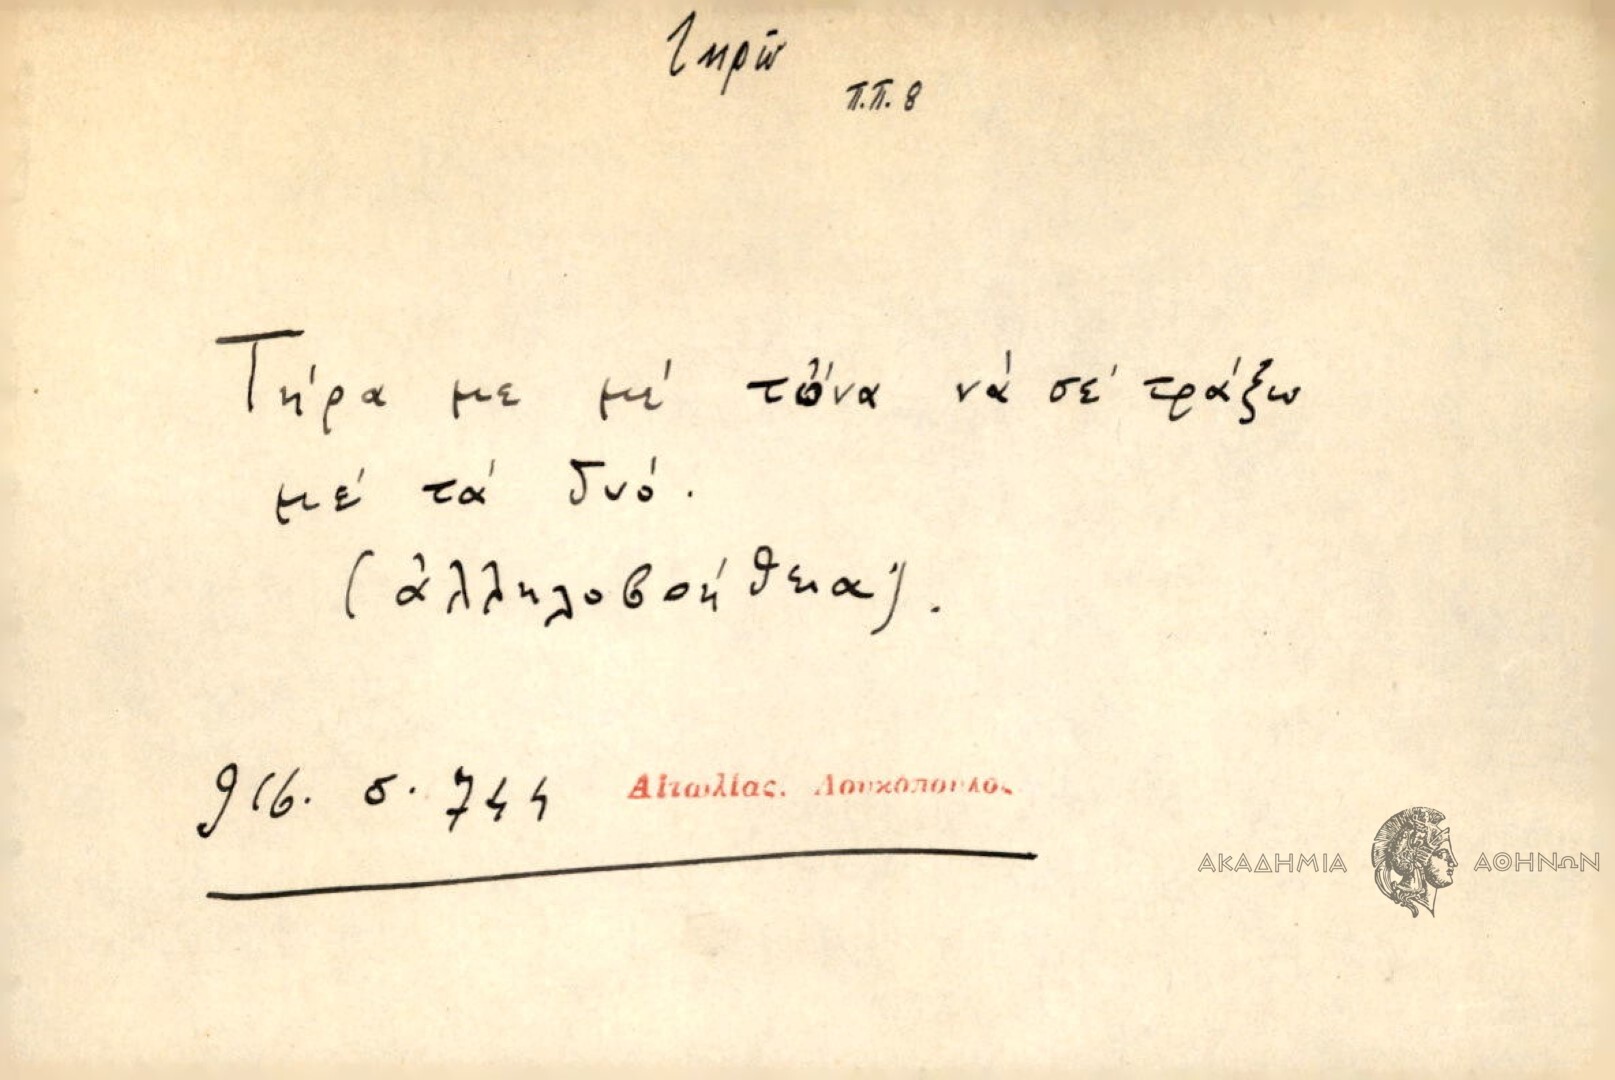 τηρῶ
π.π. 8
Τήρα με μέ τὄνα νά σέ τράξω
μέ τά δυό.
(ἀλληλοβοήθεια).
916. σ. 744 Αἰτωλίας. Λουκόπουλος
ΑΚΑΔΗΜΙΑ ΑΘΗΝΩΝ